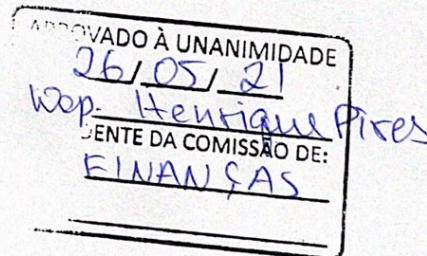 APROVADO À UNANIMIDADE
26/05/21
Henrique Pires
DENTE DA COMISSÃO DE:
FINANÇAS